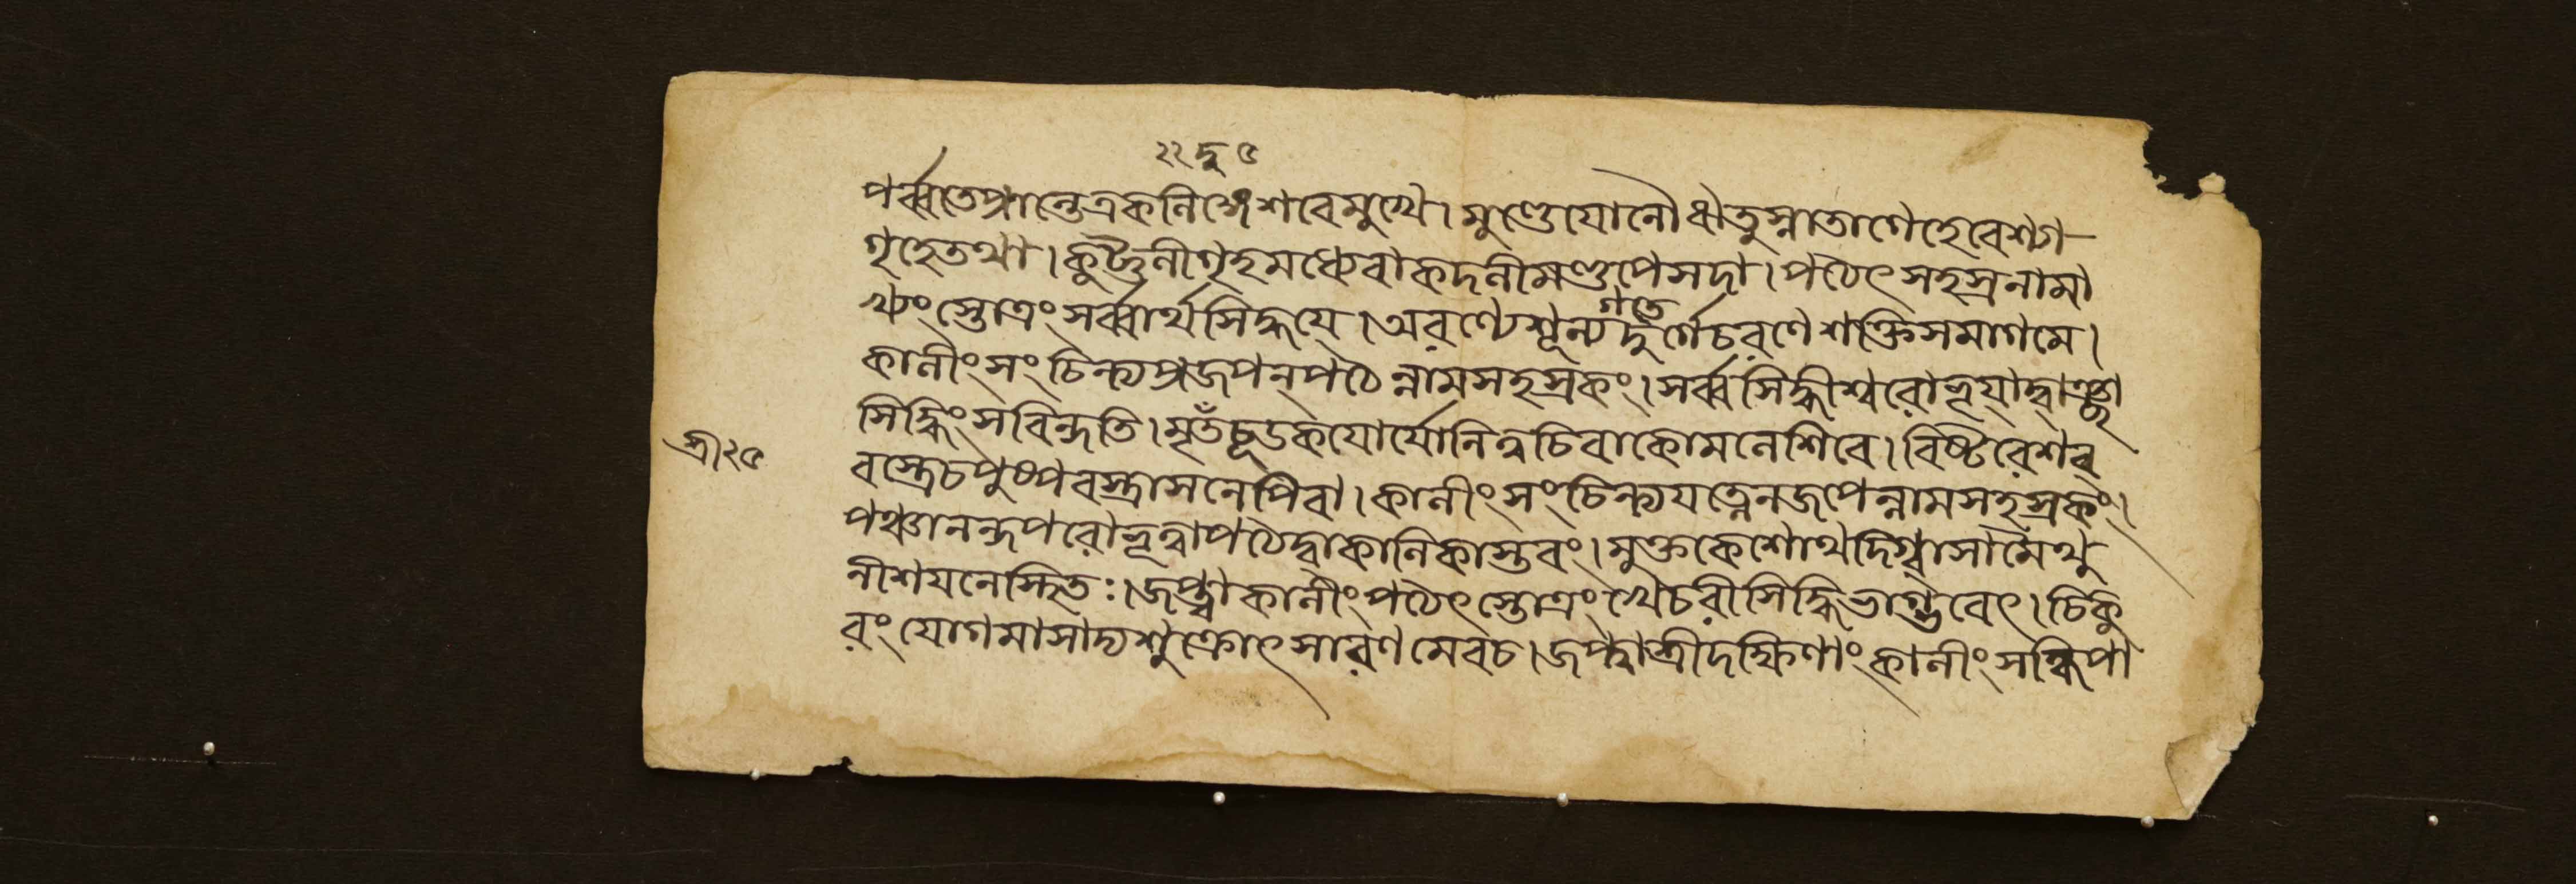 ২২ দু ৫
পর্ব্বতেপ্রান্তেএকলিঙ্গেশবেমুখে।মুণ্ডেযোনৌধাতুস্নাতাগেহেবেশ্যা
গৃহেতথা।কুট্টনীগৃহমধ্যেবাকদলীমণ্ডপেসদা।পঠেৎসহস্রনামা
খ্যংস্তোত্রংসর্ব্বার্থসিদ্ধয়ে।অরণ্যেশূন্যগর্তেদুর্গেচরণেশক্তিসমাগমে।
কালীংসংচিন্ত্যপ্রজপন্পঠেন্নামসহস্রকং।সর্ব্বসিদ্ধীশ্বরোভূয়াদ্বাঞ্ছা
সিদ্ধিংসবিন্দতি।মৃতচূডকয়োর্যোনিত্বচিবাকোমলেশিবে।বিষ্টরেশব
বস্ত্রেচপুষ্পবস্ত্রাসনেপিবা।কালীংসংচিন্ত্যযত্নেনজপেন্নামসহস্রকং।
শ্রী২৫
পঞ্চানন্দপরোভূত্বাপঠেদ্বাকালিকাস্তবং।মুক্তকেশোথদিগ্বাসামৈথু
নীশয়নেস্থিতঃ।জপ্ত্বাকালীংপঠেৎস্তোত্রংখেচরীসিদ্ধিভাগ্ভবেৎ।চিকু
রংযোগমাসাদ্যশুক্রোৎসারণমেবচ।জপ্ত্বাশ্রীদক্ষিণাংকালীংসন্ধিপা